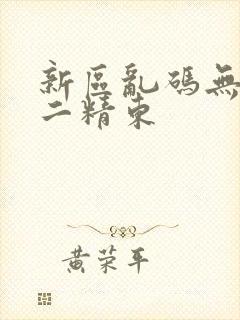 新区亂碼無
二精東
黄荣平